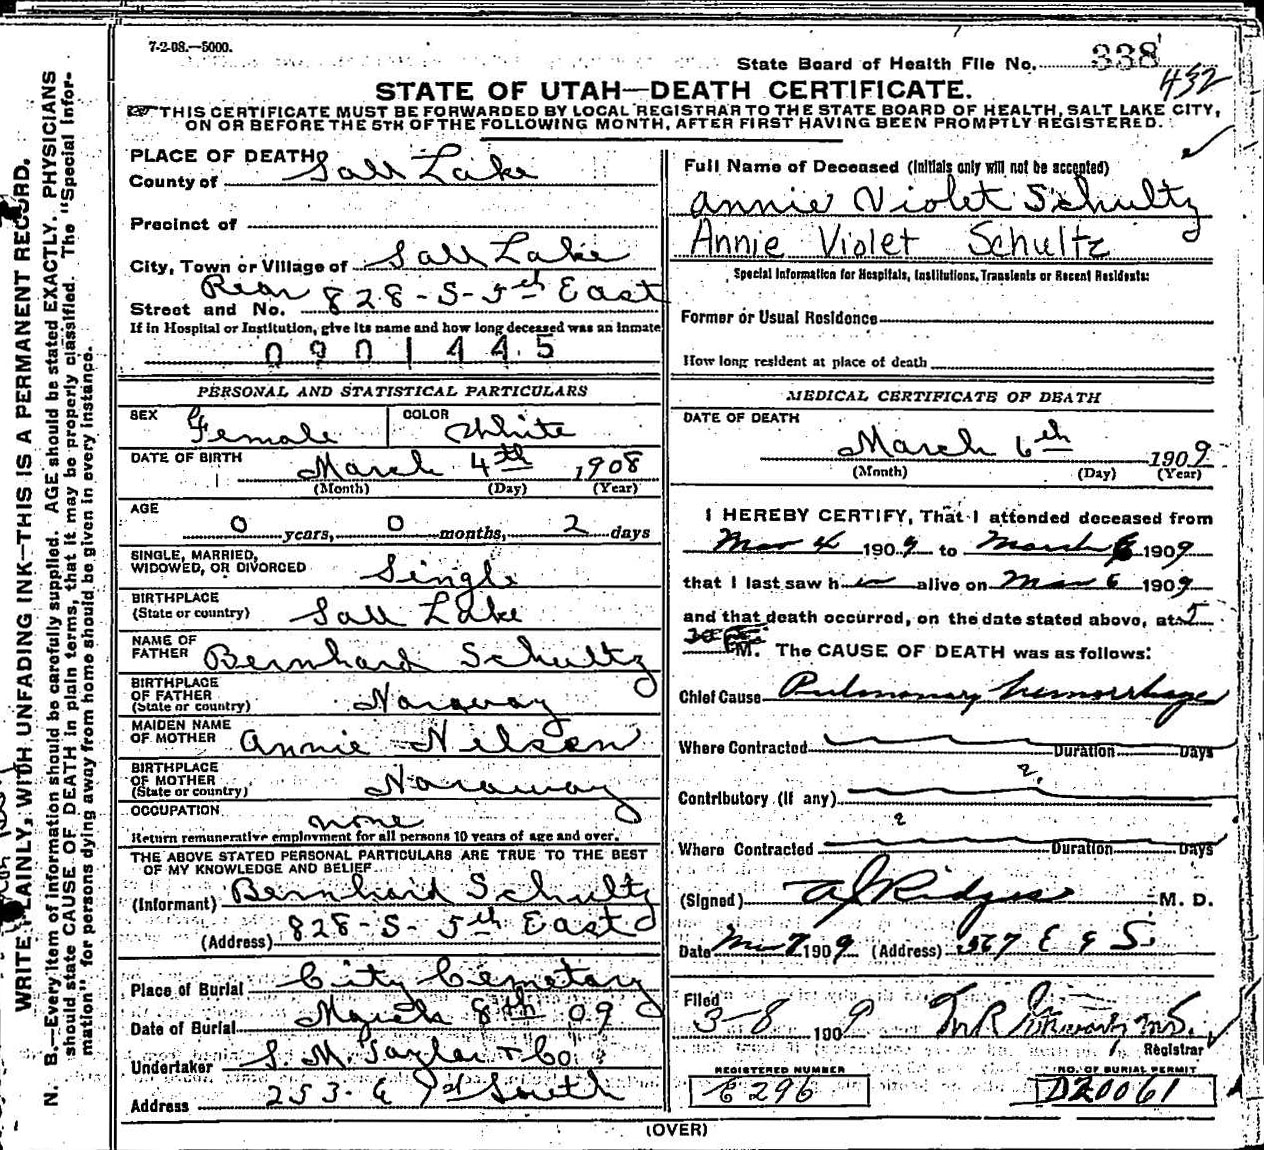 7-2-08.—5000.
State Board of Health File No. 338
432
STATE OF UTAH—DEATH CERTIFICATE.
THIS CERTIFICATE MUST BE FORWARDED BY LOCAL REGISTRAR TO THE STATE BOARD OF HEALTH, SALT LAKE CITY,
ON OR BEFORE THE 5TH OF THE FOLLOWING MONTH, AFTER FIRST HAVING BEEN PROMPTLY REGISTERED.
WRITE PLAINLY, WITH UNFADING INK—THIS IS A PERMANENT RECORD.
N. B.—Every item of information should be carefully supplied. AGE should be stated EXACTLY. PHYSICIANS
should state CAUSE OF DEATH in plain terms, that it may be properly classified. The "Special Infor-
mation" for persons dying away from home should be given in every instance.
PLACE OF DEATH
County of Salt Lake
Precinct of
City, Town or Village of Salt Lake
Street and No. Rear 828-S-5th East
If in Hospital or Institution, give its name and how long deceased was an inmate
0901445
PERSONAL AND STATISTICAL PARTICULARS
SEX Female COLOR White
DATE OF BIRTH March 4th 1908
(Month) (Day) (Year)
AGE
0 years, 0 months, 2 days
SINGLE, MARRIED,
WIDOWED, OR DIVORCED Single
BIRTHPLACE
(State or country) Salt Lake
NAME OF
FATHER Bernhard Schultz
BIRTHPLACE
OF FATHER
(State or country) Noraway
MAIDEN NAME
OF MOTHER Annie Nelsen
BIRTHPLACE
OF MOTHER
(State or country) Noraway
OCCUPATION none
Return remunerative employment for all persons 10 years of age and over.
THE ABOVE STATED PERSONAL PARTICULARS ARE TRUE TO THE BEST
OF MY KNOWLEDGE AND BELIEF
(Informant) Bernhard Schultz
(Address) 828-S-5th East
Place of Burial City Cemetary
Date of Burial March 8th 09
Undertaker S. M. Taylor & Co
Address 253 E South
Full Name of Deceased (Initials only will not be accepted)
Annie Violet Schultz
Annie Violet Schultz
Special Information for Hospitals, Institutions, Transients or Recent Residents:
Former or Usual Residence
How long resident at place of death
MEDICAL CERTIFICATE OF DEATH
DATE OF DEATH
March 6th 1909
(Month) (Day) (Year)
I HEREBY CERTIFY, That I attended deceased from
Mar 4 1909 to March 6 1909
that I last saw her alive on Mar 6 1909
and that death occurred, on the date stated above, at 5
30 M. The CAUSE OF DEATH was as follows:
Chief Cause Pulmonary hemorrhage
Where Contracted Duration Days
Contributory (If any)
Where Contracted Duration Days
(Signed) A J Ridges M. D.
Date Mar 7 1909 (Address) 567 E 9 S.
Filed 3-8 1909
Registrar
REGISTERED NUMBER
C 296
NO. OF BURIAL PERMIT
D20061
(OVER)